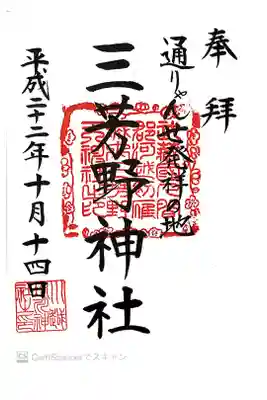 奉拝
通りゃんせ発祥の地
三芳野神社
平成二十二年十月十四日
CamScannerでスキャン